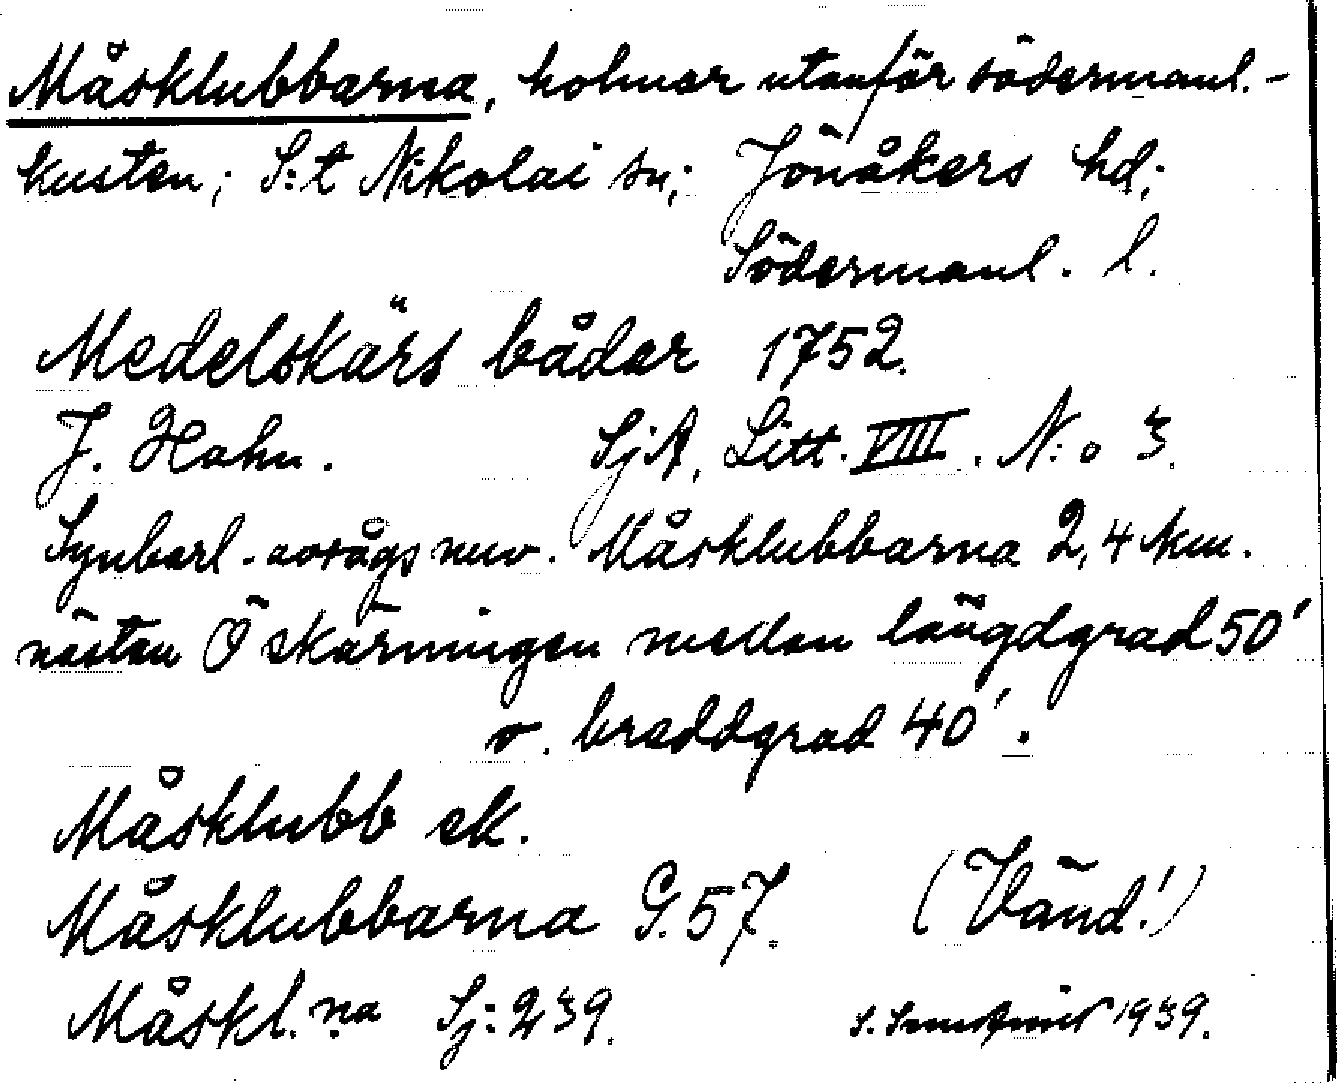 Måsklubbarna, holmar utanför södermanl.-
kusten; S:t Nikolai sn; Jönåkers hd;
Södermanl. l.
Medelskärs bådar 1752.
J. Hahn. SjA, Litt. VIII. N:o 3.
Synbarl. avsågs nuv. Måsklubbarna 2,4 km.
nästan Ö skärningen mellan längdgrad 50'
o. breddgrad 40'.
Måsklubb ek.
Måsklubbarna G. 57. (Vänd!)
Måskl.na Sj: 239. 1939.